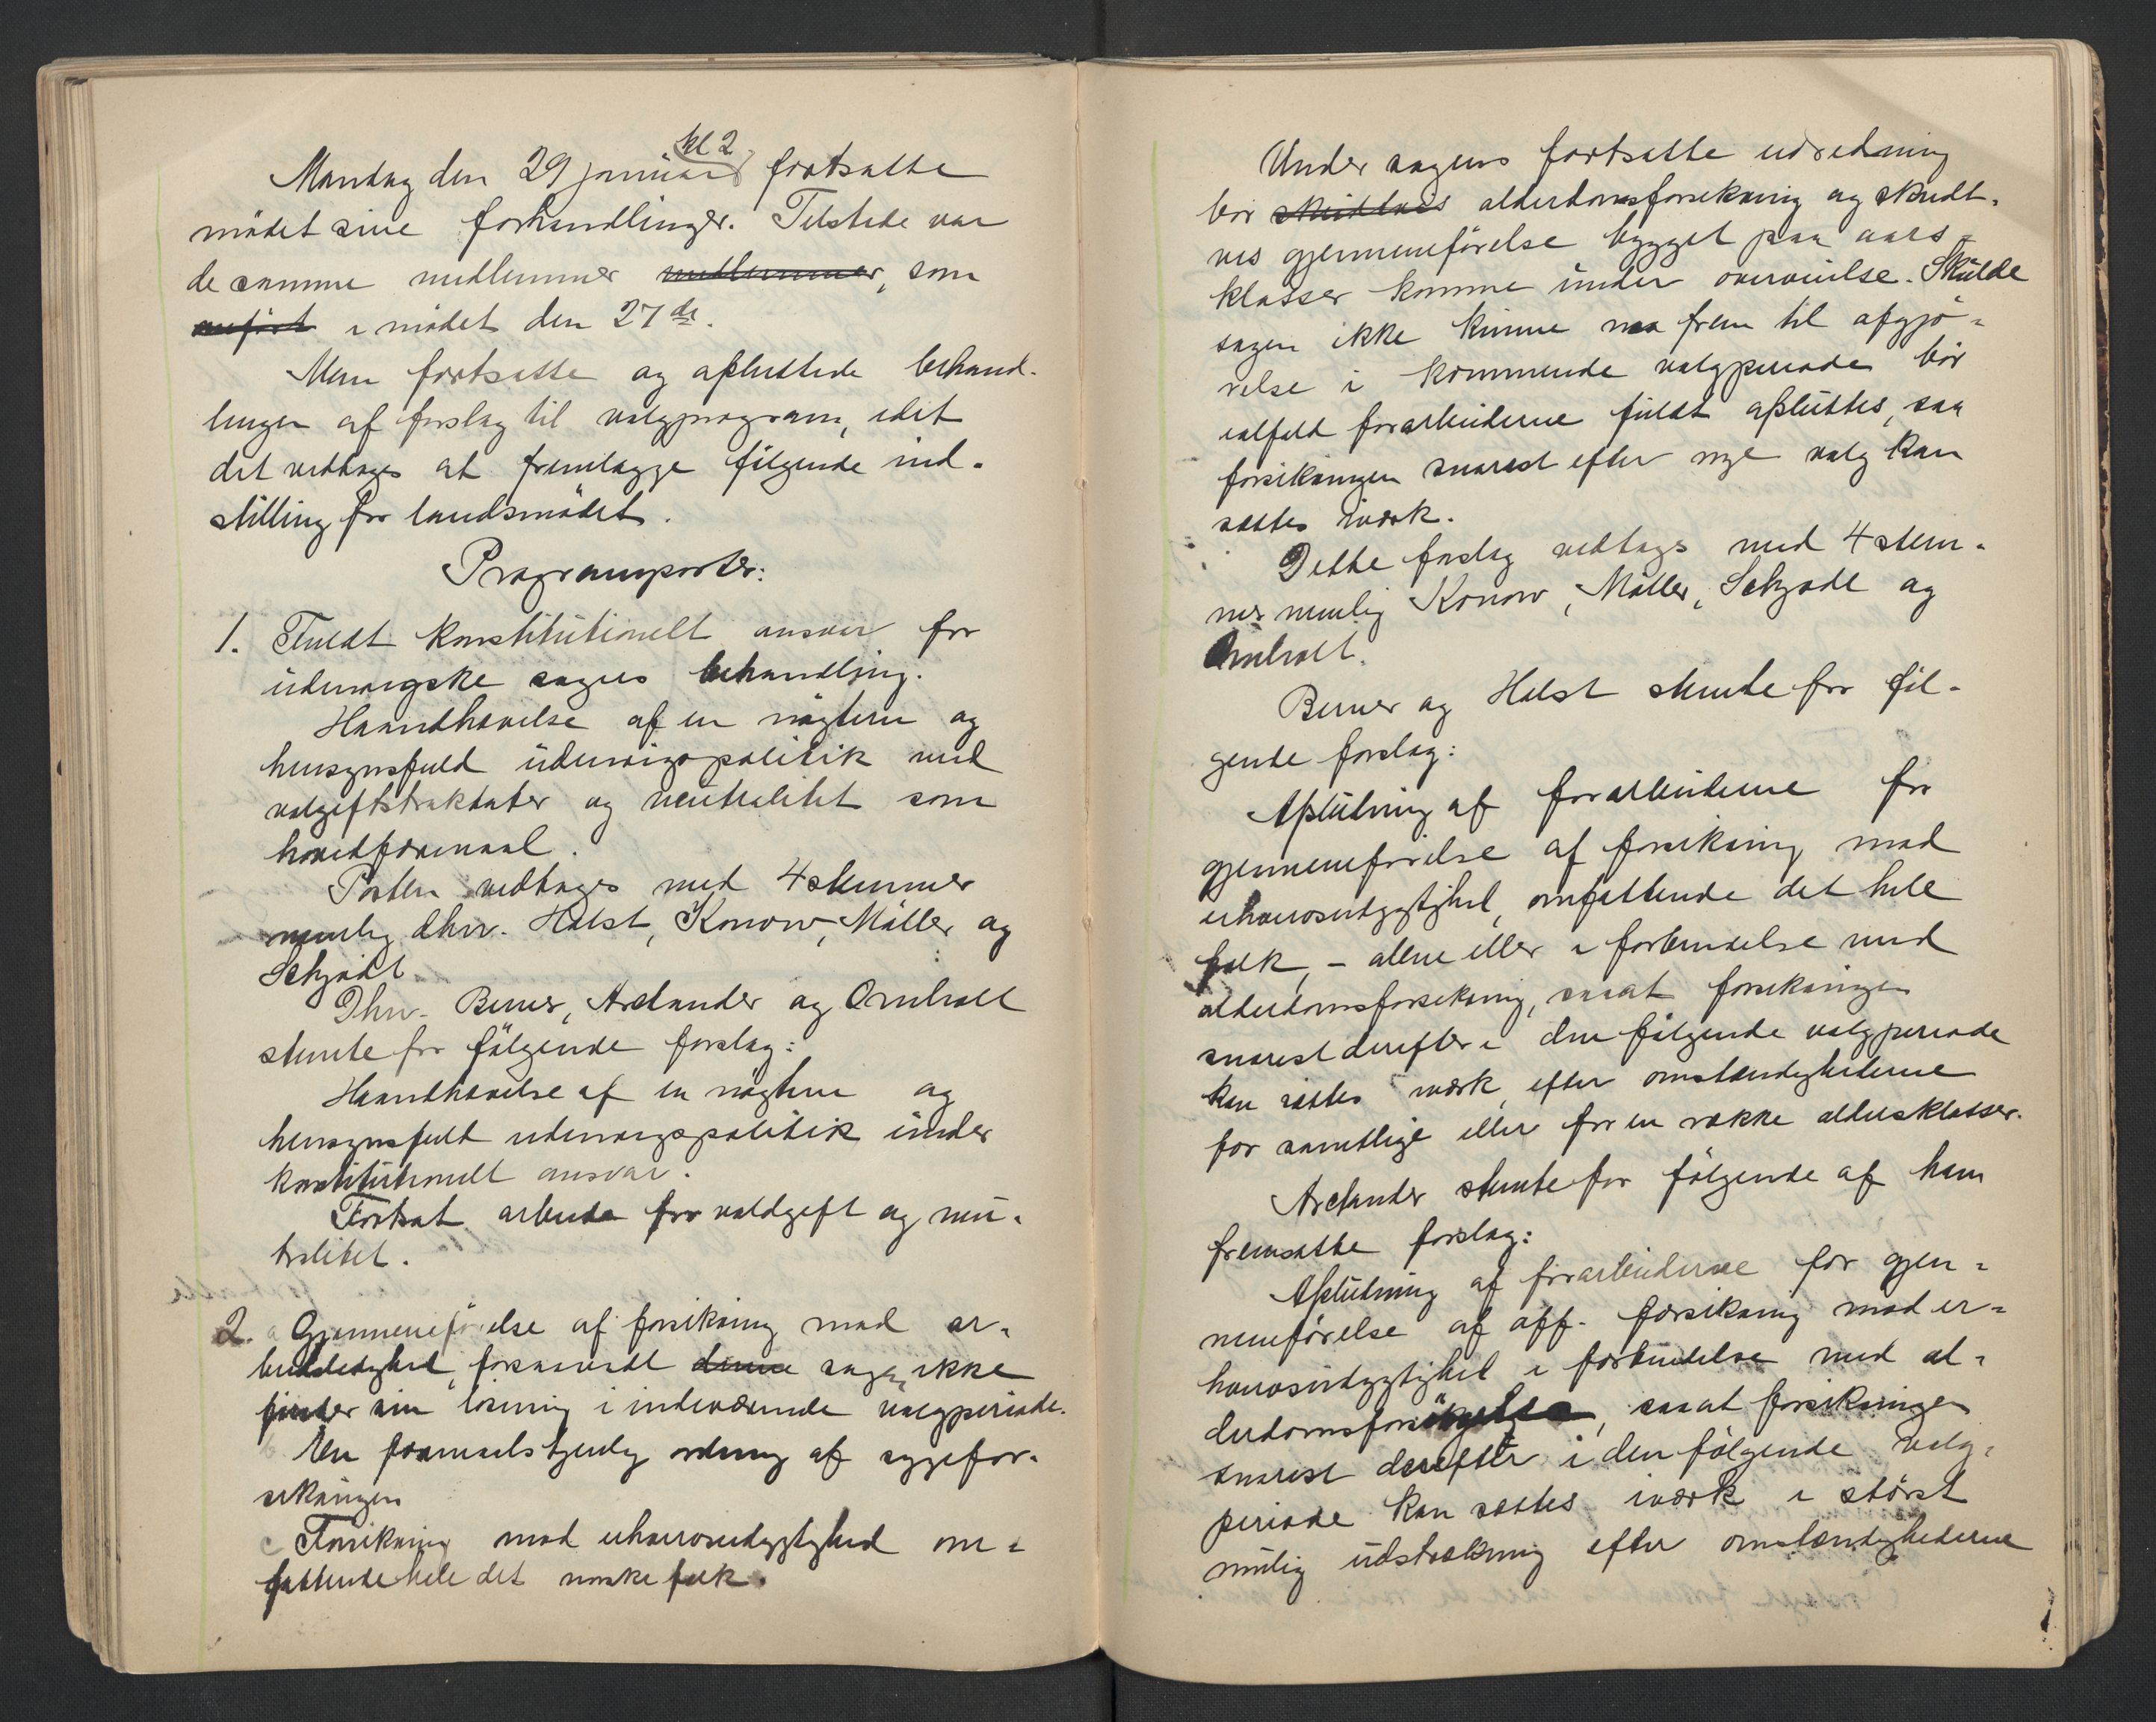 kl 2
Mandag den 29 januar fortsatte
mödet sine forhandlinger. Tilstede var
de samme medlemmer medlemmer, som
anfört i mödet den 27de.
Man fortsatte og afsluttede behand-
lingen af forslag til valgprogram, idet
det vedtages at fremlægge følgende ind-
stilling for landsmödet.
Programposter:
1. Fuldt konstitutionelt ansvar for
udenrigske sagers behandling.
Haandhævelse af en nögtern og
hensynsfuld udenrigspolitik med
volgiftstraktater og neutralitet som
hovedformaal.
Posten vedtages med 4 stemmer
nemlig dhrr. Holst, Konow, Möller og
Schjödt
Dhrr. Berner, Arctander og Omholt
stemte for følgende forslag:
Haandhævelse af en nögtern og
hensynsfuld udenrigspolitik under
konstitutionelt ansvar.
Fortsat arbeide for voldgift og neu-
tralitet.
2. a Gjennemförelse af forsikring mod ar-
beidsledighed, forsaavidt denne sagen ikke
finder sin lösning i indeværende valgperiode.
b En formaalstjenlig ordning af sygefor-
sikringen
c Forsikring mod erhvervsudygtighed om-
fattende hele det norske folk.
Under sagens fortsatte udredning
bör skridtvis alderdomsforsikring og skridt-
vis gjennemförelse bygget paa aars-
klasser komme under overveielse. Skulde
sagen ikke kunne naa frem til afgjö-
relse i kommende valgperiode bör
ialfald forarbeiderne fuldt afsluttes, saa
forsikringen snarest efter nye valg kan
sættes iværk.
Dette forslag vedtages med 4 stem-
mer nemlig Konow, Möller, Schjödt og
Omholt.
Berner og Holst stemte for föl-
gende forslag:
Afslutning af forarbeiderne for
gjennemförelse af forsikring mod
erhvervsudygtighed, omfattende det hele
folk, – alene eller i forbindelse med
alderdomsforsikring, saaat forsikringen
snarest derefter i den følgende valgperiode
kan sættes iværk, efter omstændighederne
for samtlige eller for en række aldersklasser.
Arctander stemte for følgende af ham
fremsatte forslag:
Afslutning af forarbeiderne for gjen-
nemförelse af off. forsikring mod er-
hvervsudygtighed i forbindelse med al-
derdomsforsörgelse, saaat forsikringen
snarest derefter i den følgende valg-
periode kan sættes iværk i störst
mulig udstrækning efter omstændighederne